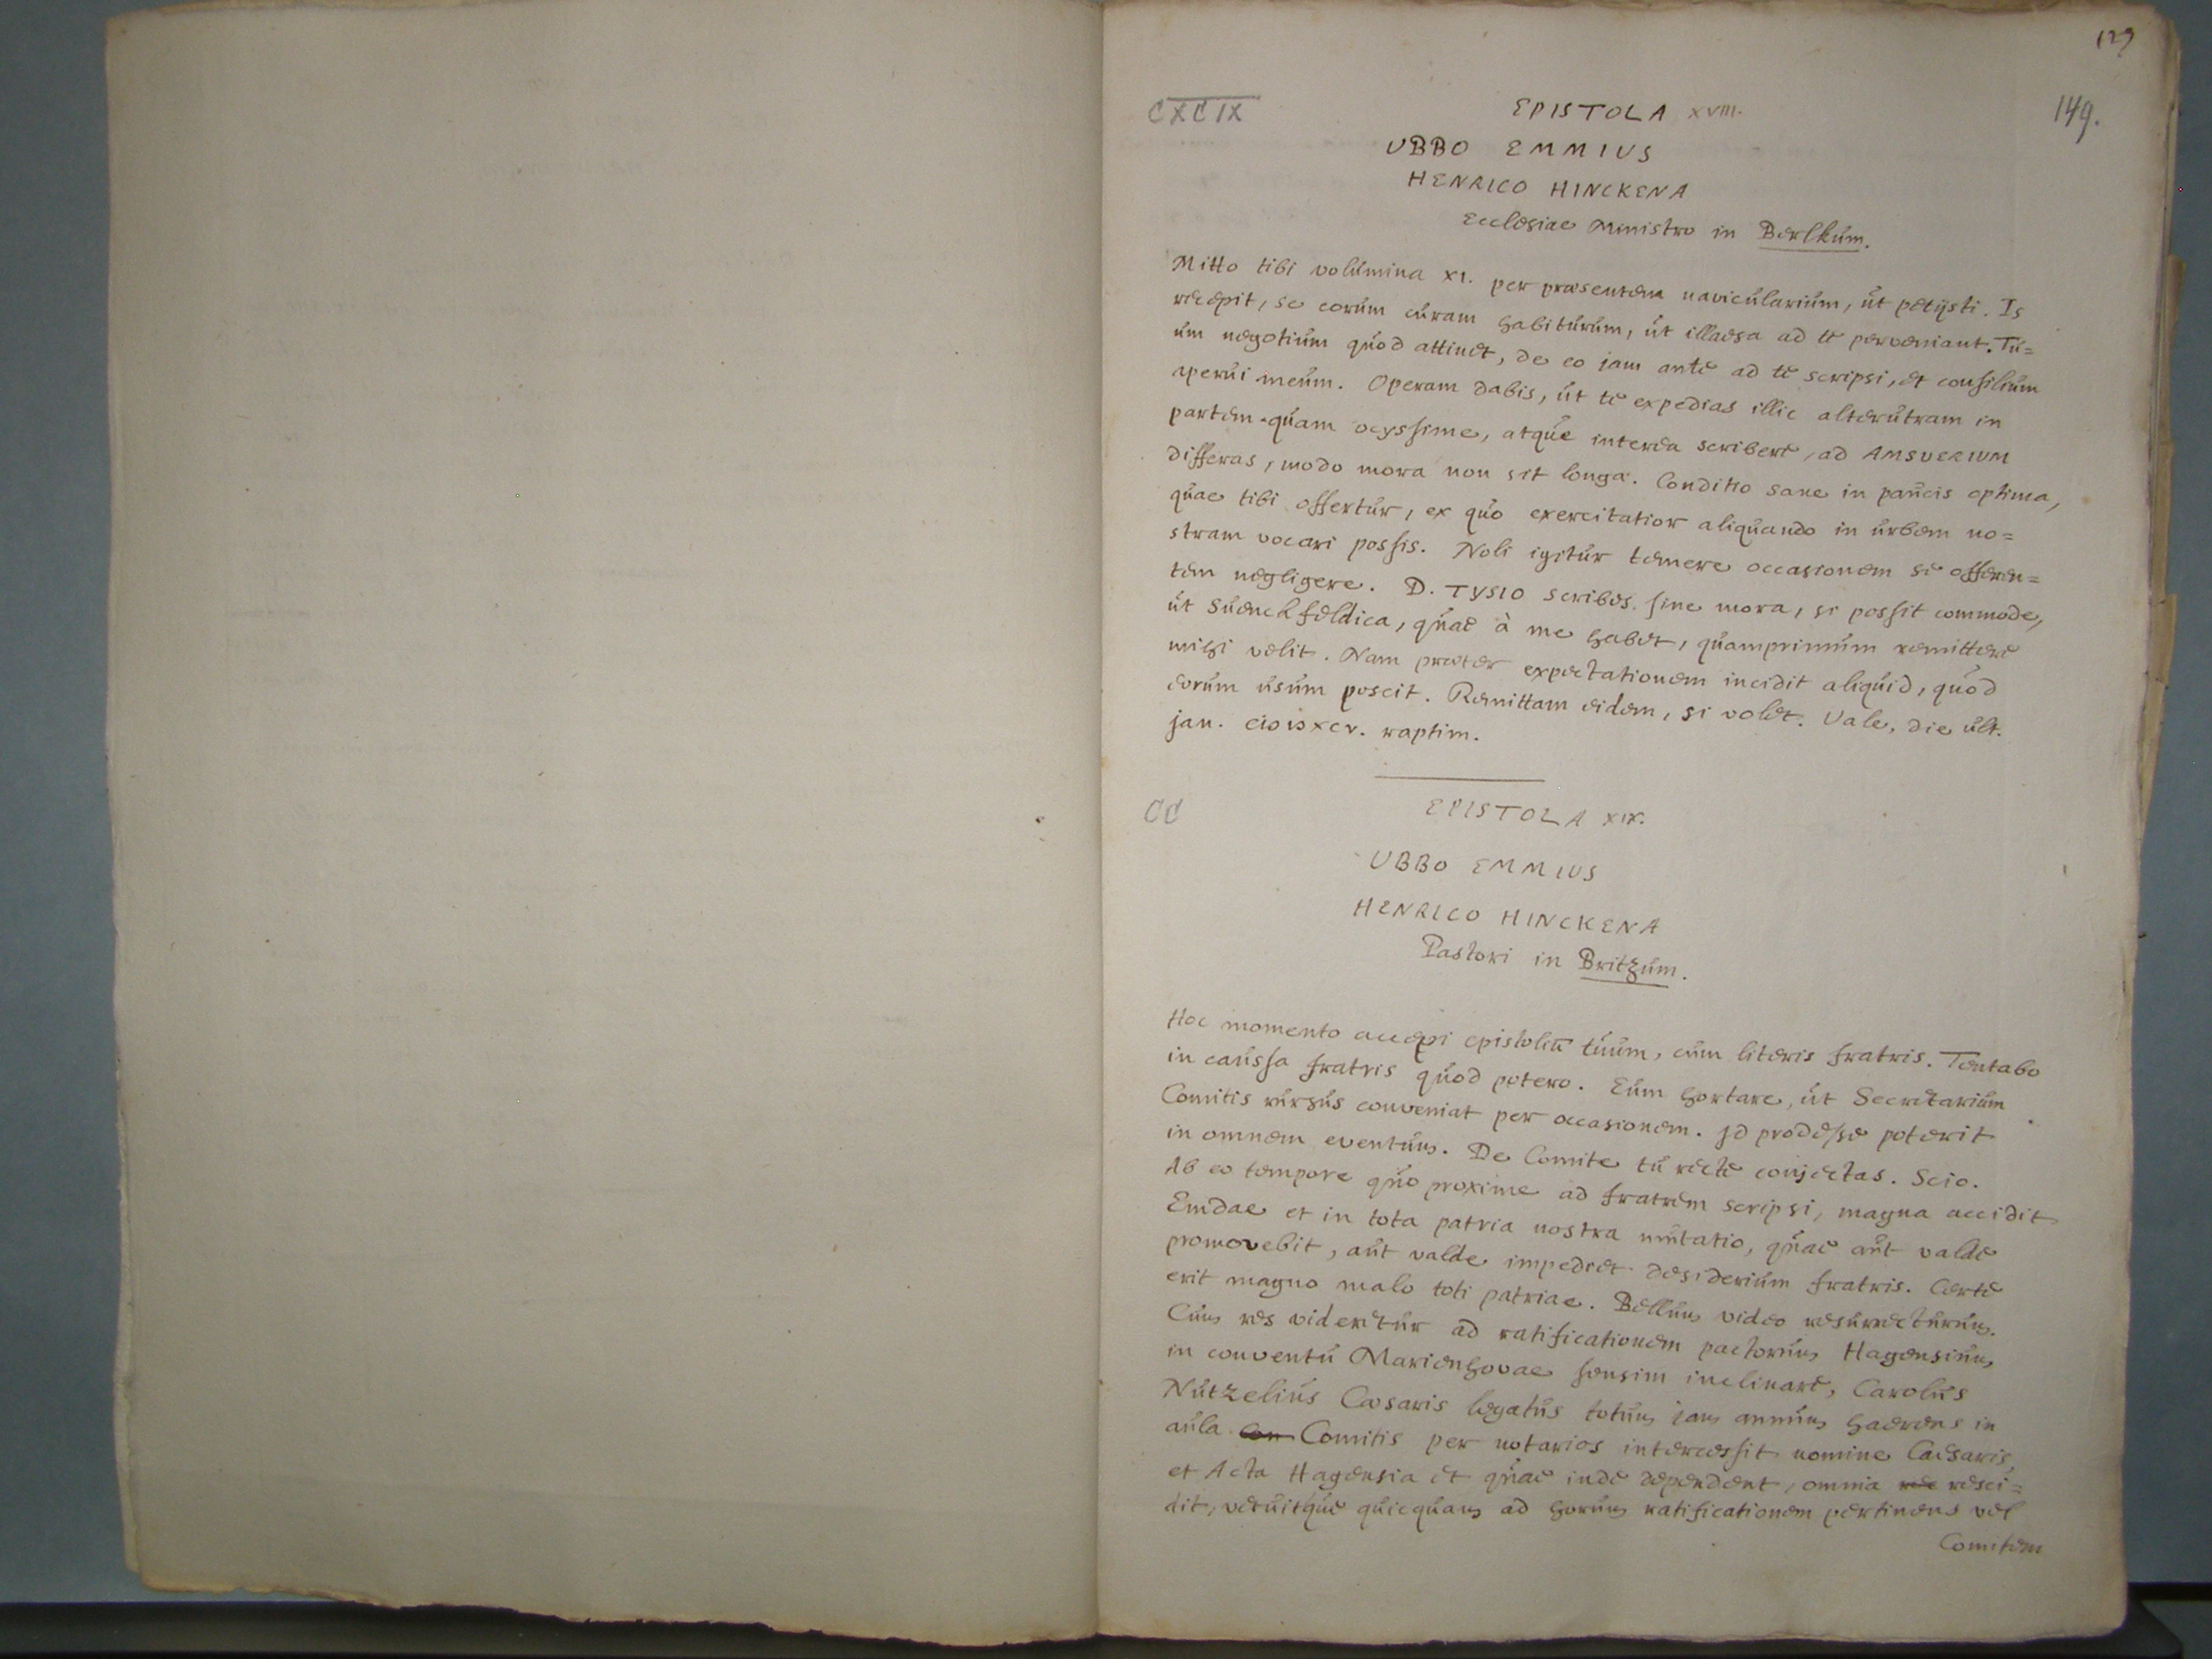 129
CXCIX
EPISTOLA XVIII.
149.
UBBO EMMIUS
HENRICO HINCKENA
Ecclesiae Ministro in Berlkum.
Mitto tibi volumina XI. per praesentem navicularium, ut petijsti. Is
recepit, se eorum curam habiturum, ut illaesa ad te perveniant. Tu=
um negotium quod attinet, de eo jam ante ad te scripsi, et consilium
aperui meum. Operam dabis, ut te expedias illic alterutram in
partem quam ocyssime, atque interea scribere, ad AMSVERIUM
differas, modo mora non sit longa. Conditio sane in paucis optima,
quae tibi offertur, ex quo exercitatior aliquando in urbem no=
stram vocari possis. Noli igitur temere occasionem se offeren=
tem negligere. D. TYSIO scribes sine mora, si possit commode,
ut Suenckfeldica, quae à me habet, quamprimum remittere
mihi velit. Nam praeter expectationem incidit aliquid, quod
eorum usum poscit. Remittam eidem, si volet. Vale, die ult.
jan. cIↃ IↃ xcv. raptim.
CC
EPISTOLA XIX.
UBBO EMMIUS
HENRICO HINCKENA
Pastori in Britzum.
Hoc momento accepi epistolium tuum, cum literis fratris. Tentabo
in caussa fratris quod potero. Eum hortare, ut Secretarium
Comitis rursus conveniat per occasionem. Jd prodesse poterit
in omnem eventum. De Comite tu recte conjectas. Scio.
Ab eo tempore quo proxime ad fratrem scripsi, magna accidit
Emdae et in tota patria nostra mutatio, quae aut valde
promovebit, aut valde impediet desiderium fratris. Certe
erit magno malo toti patriae. Bellum video resurrecturum.
Cum res videretur ad ratificationem pactorum Hagensium
in conventu Marienhovae sensim inclinare, Carolus
Nutzelius Caesaris legatus totum jam annum haerens in
aula Com Comitis per notarios intercessit nomine Caesaris,
et Acta Hagensia et quae inde dependent, omnia rec resci=
dit, vetuitque quicquam ad horum ratificationem pertinens vel
Comitem